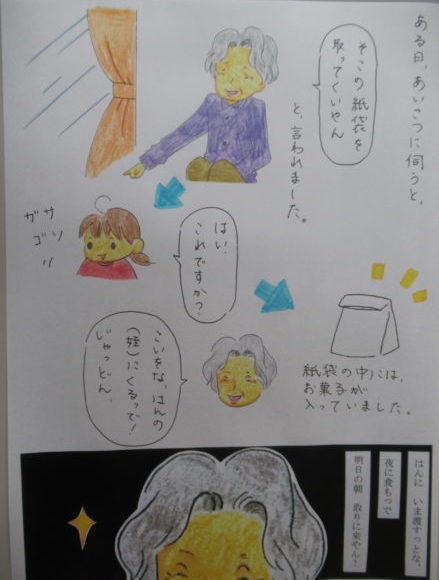 ある日、あいさつに伺うと、
そこの紙袋を
取ってくいやん
と、言われました。
ガサ
ゴソ
はい。
これですか？
紙袋の中には、
お菓子が
入っていました。
こいをな、はんの
(姪)にくるっで！
じゃっどん、
はんに　いま渡すっとな、
夜に食もっで
明日の朝　取りに来やん！